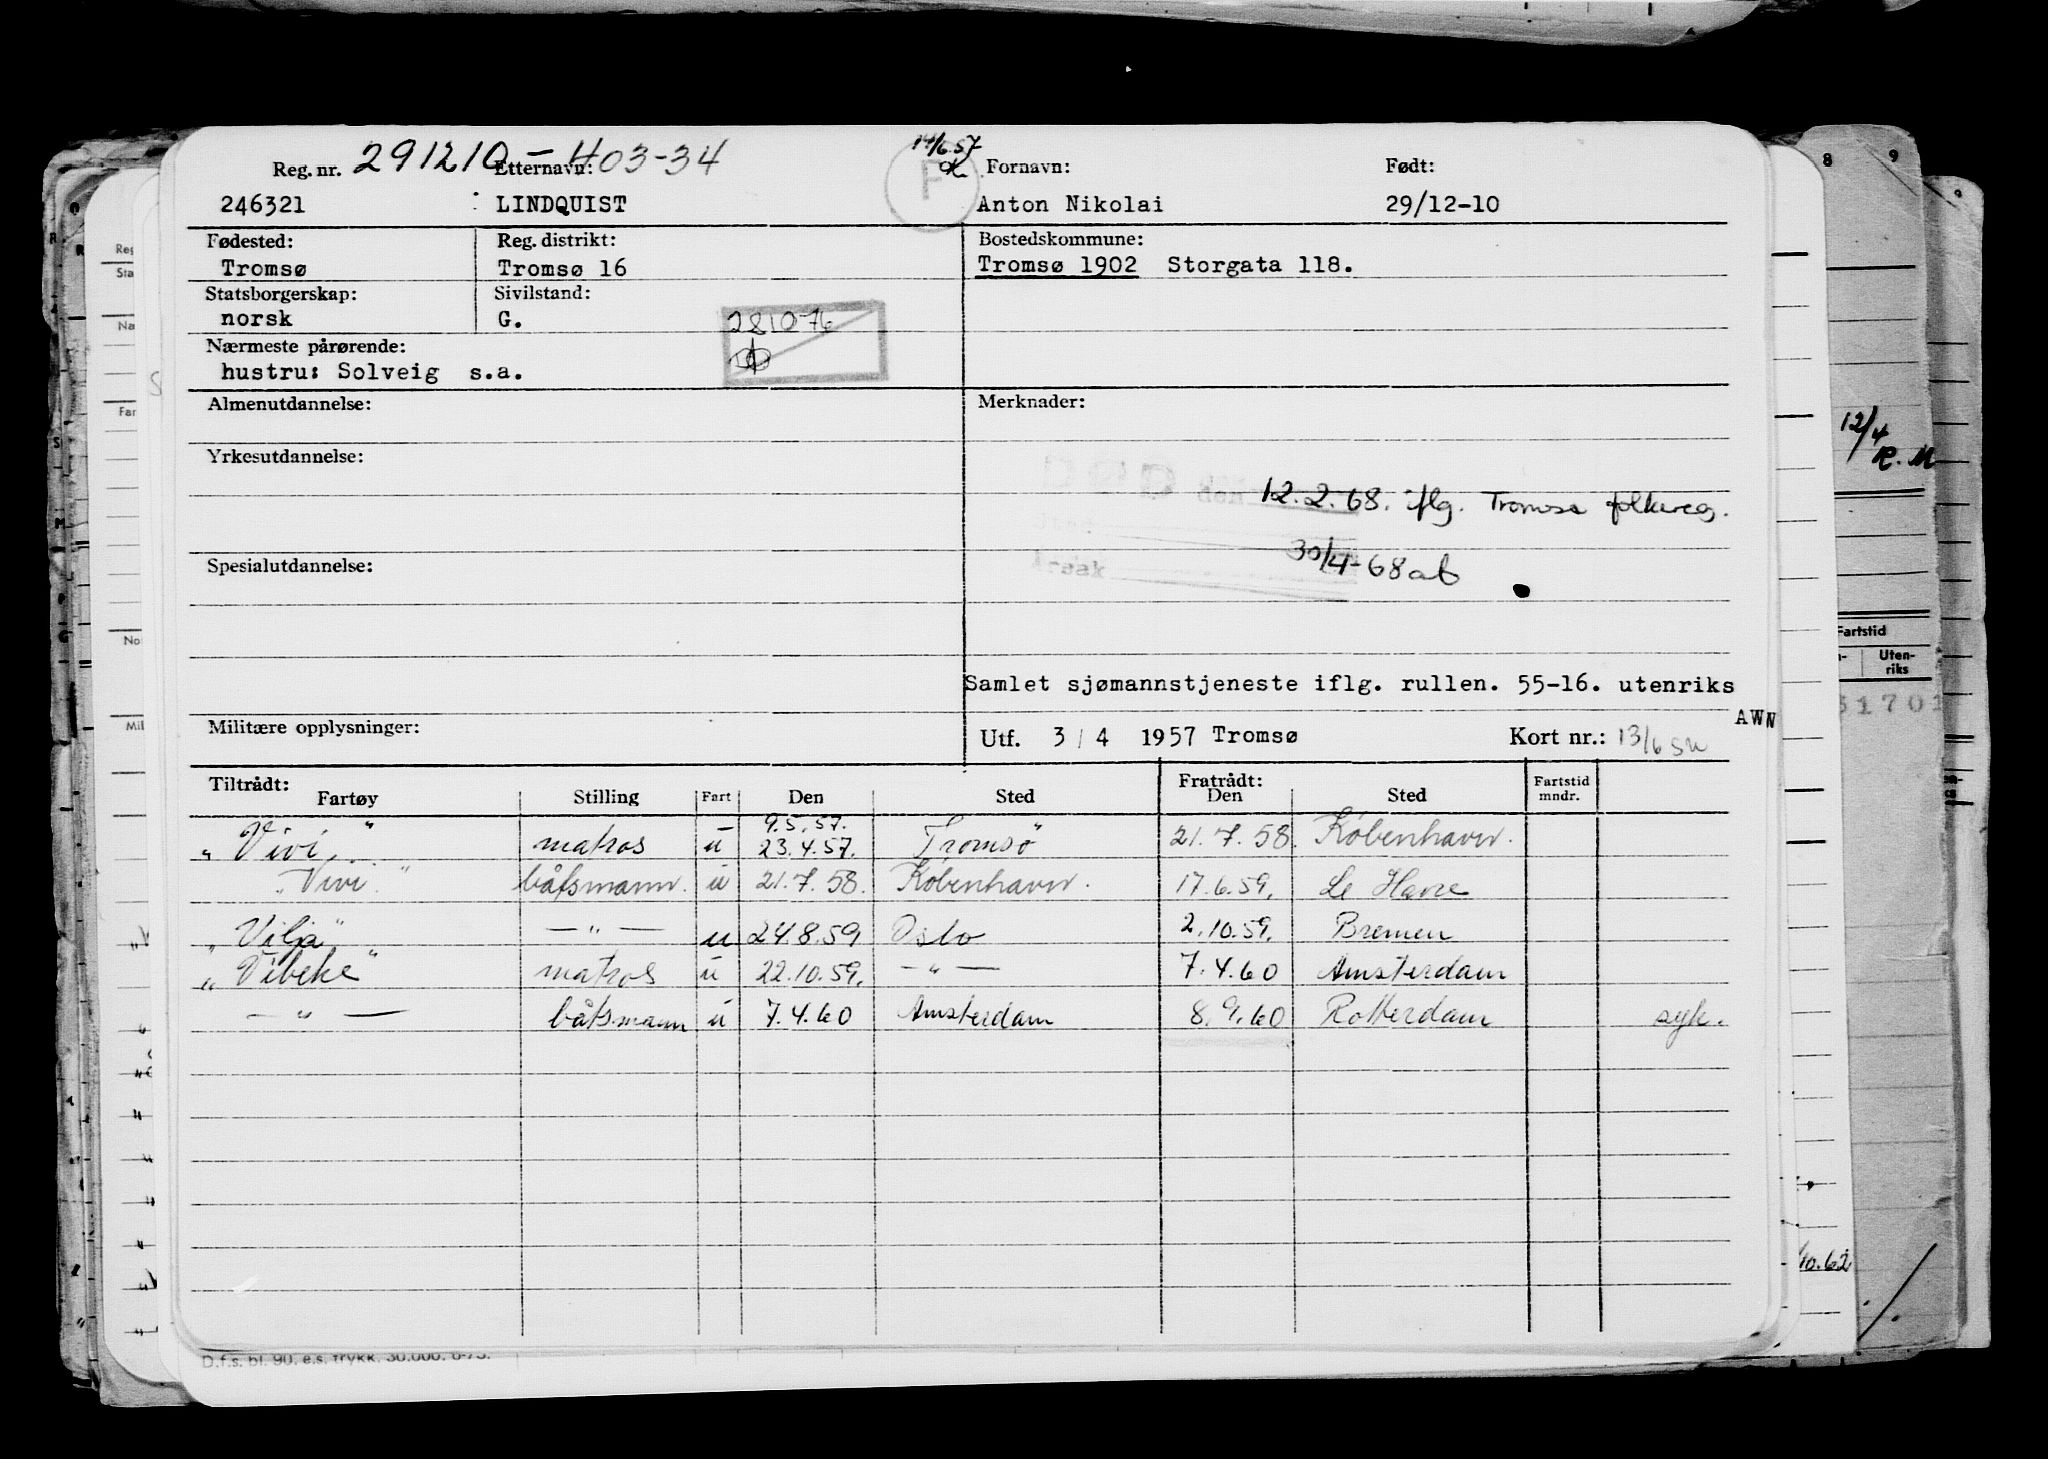 Reg. nr. 291210-40334 Etternavn: 14/6.57 Fornavn: Født:
246321 LINDQUIST F Anton Nikolai 29/12-10
Fødested: Reg. distrikt: Bostedskommune:
Tromsø Tromsø 16 Tromsø 1902 Storgata 118.
Statsborgerskap: Sivilstand:
norsk G.
281076
Nærmeste pårørende:
hustru: Solveig s.a.
Almenutdannelse: Merknader:
Yrkesutdannelse:
DØD den 12.2.68. iflg. Tromsø folkereg.
Sted
Årsak 30/4-68 ab
Spesialutdannelse:
Samlet sjømannstjeneste iflg. rullen. 55-16. utenriks
AWN
Militære opplysninger: Utf. 3/4 1957 Tromsø Kort nr.: 13/6 sn
Tiltrådt: Fratrådt: Fartstid
Fartøy Stilling Fart Den Sted Den Sted mndr.
9.5.57.
"Vivi" matros u 23.4.57. Tromsø 21.7.58. København.
"Vivi" båtsmann. u 21.7.58. København. 17.6.59. Le Havre
"Vilja" — " — u 24.8.59 Oslo 2.10.59. Bremen
"Vibeke" matros u 22.10.59. — " — 7.4.60 Amsterdam
— " — båtsmann u 7.4.60 Amsterdam 8.9.60 Rotterdam syk.
D.f.s. bl. 90. e.s. trykk. 30.000. 6-75.
8 9
12/4
R. M
Fartstid
Uten-
riks
51701
10.62